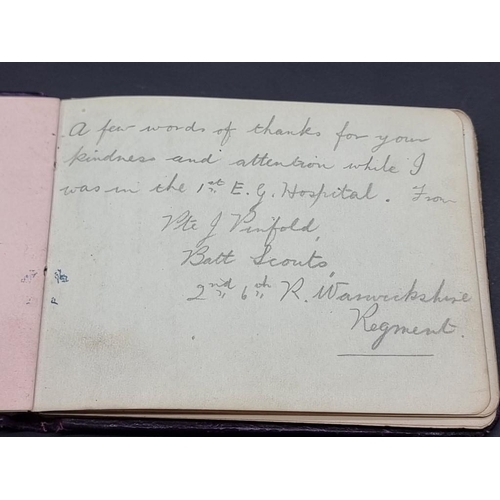 A few words of thanks for your
kindness and attention while I
was in the 1st E. G. Hospital. From
Pte J Pinfold,
Batt Scouts,
2nd 6th R. Warwickshire
Regment.